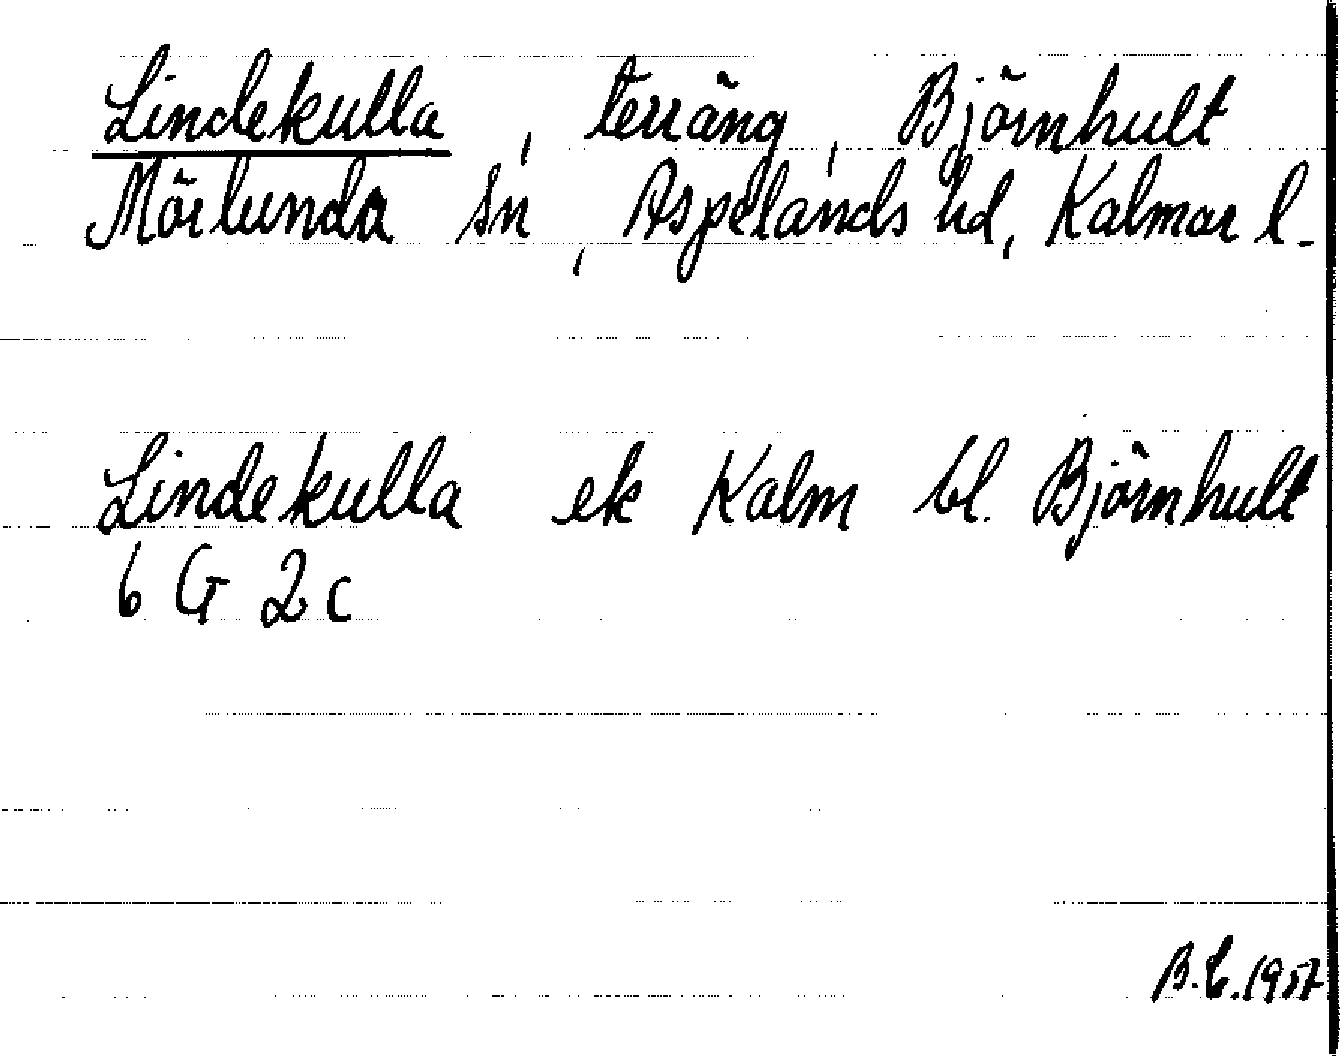 Lindekulla, terräng, Björnhult
Mörlunda sn, Aspelands hd, Kalmar l.
Lindekulla ek Kalm bl. Björnhult
6 G 2c
B.L. 1957